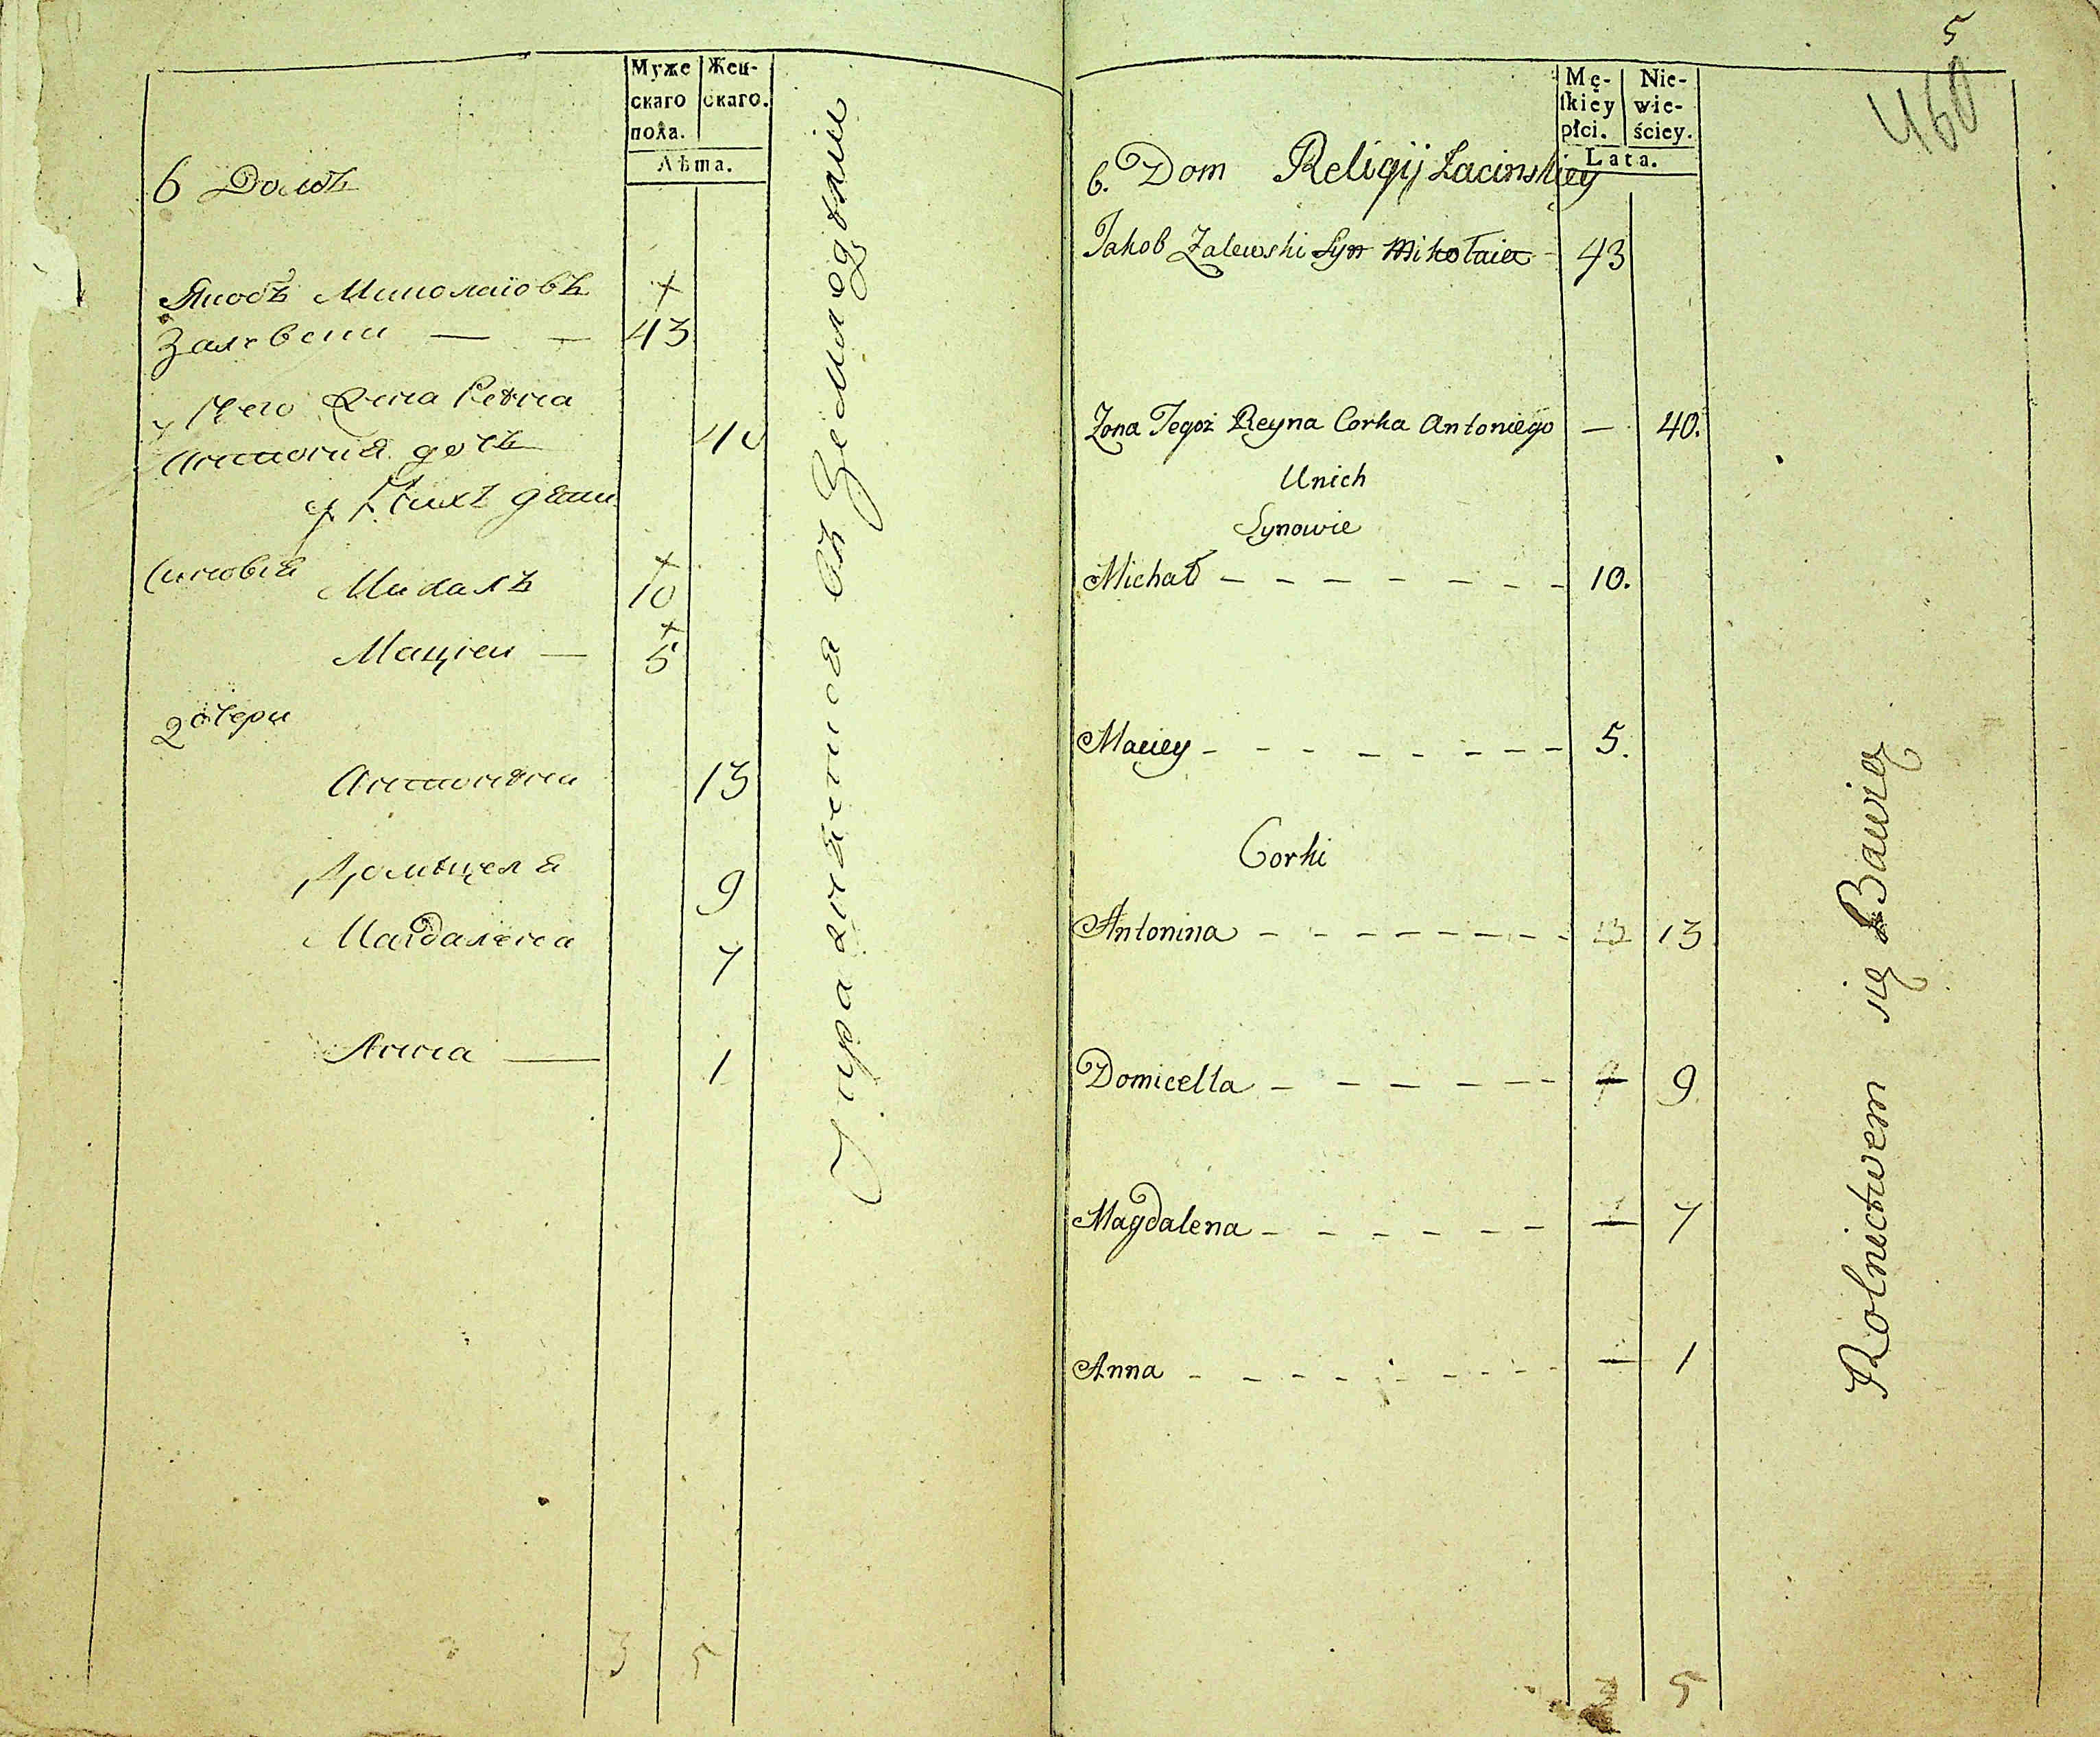 Муже
скаго
пола.
Жен-
скаго.
Лѣта.
6 Домъ
Якобъ Миколаіовъ
Залевски — — 43
у Него Жена Рейна
Антонія дочь 40
у Нихъ дѣти
Сыновія
Михалъ 10
Мацѣи — 5
дочери
Антонина 13
Домицеля 9
Магдалена 7
Анна — 1
3 5
Упражняится въ Земледѣліи
5
460
Mę-
ſkiey
płci.
Nie-
wie-
ściey.
Lata.
6. Dom Religij Łacinskiey
Jakob Zalewski Syn Mikołaia - 43
Zona Tegoż Reyna Corka Antoniego — 40.
Unich
Synowie
Michał - - - - - - - - 10.
Maciey - - - - - - - - - 5.
Corki
Antonina - - - - - - - - 13 13
Domicella - - - - - - - — 9
Magdalena - - - - - - - — 7
Anna - - - - - - - - - — 1
5
Rolnictwem się Bawią